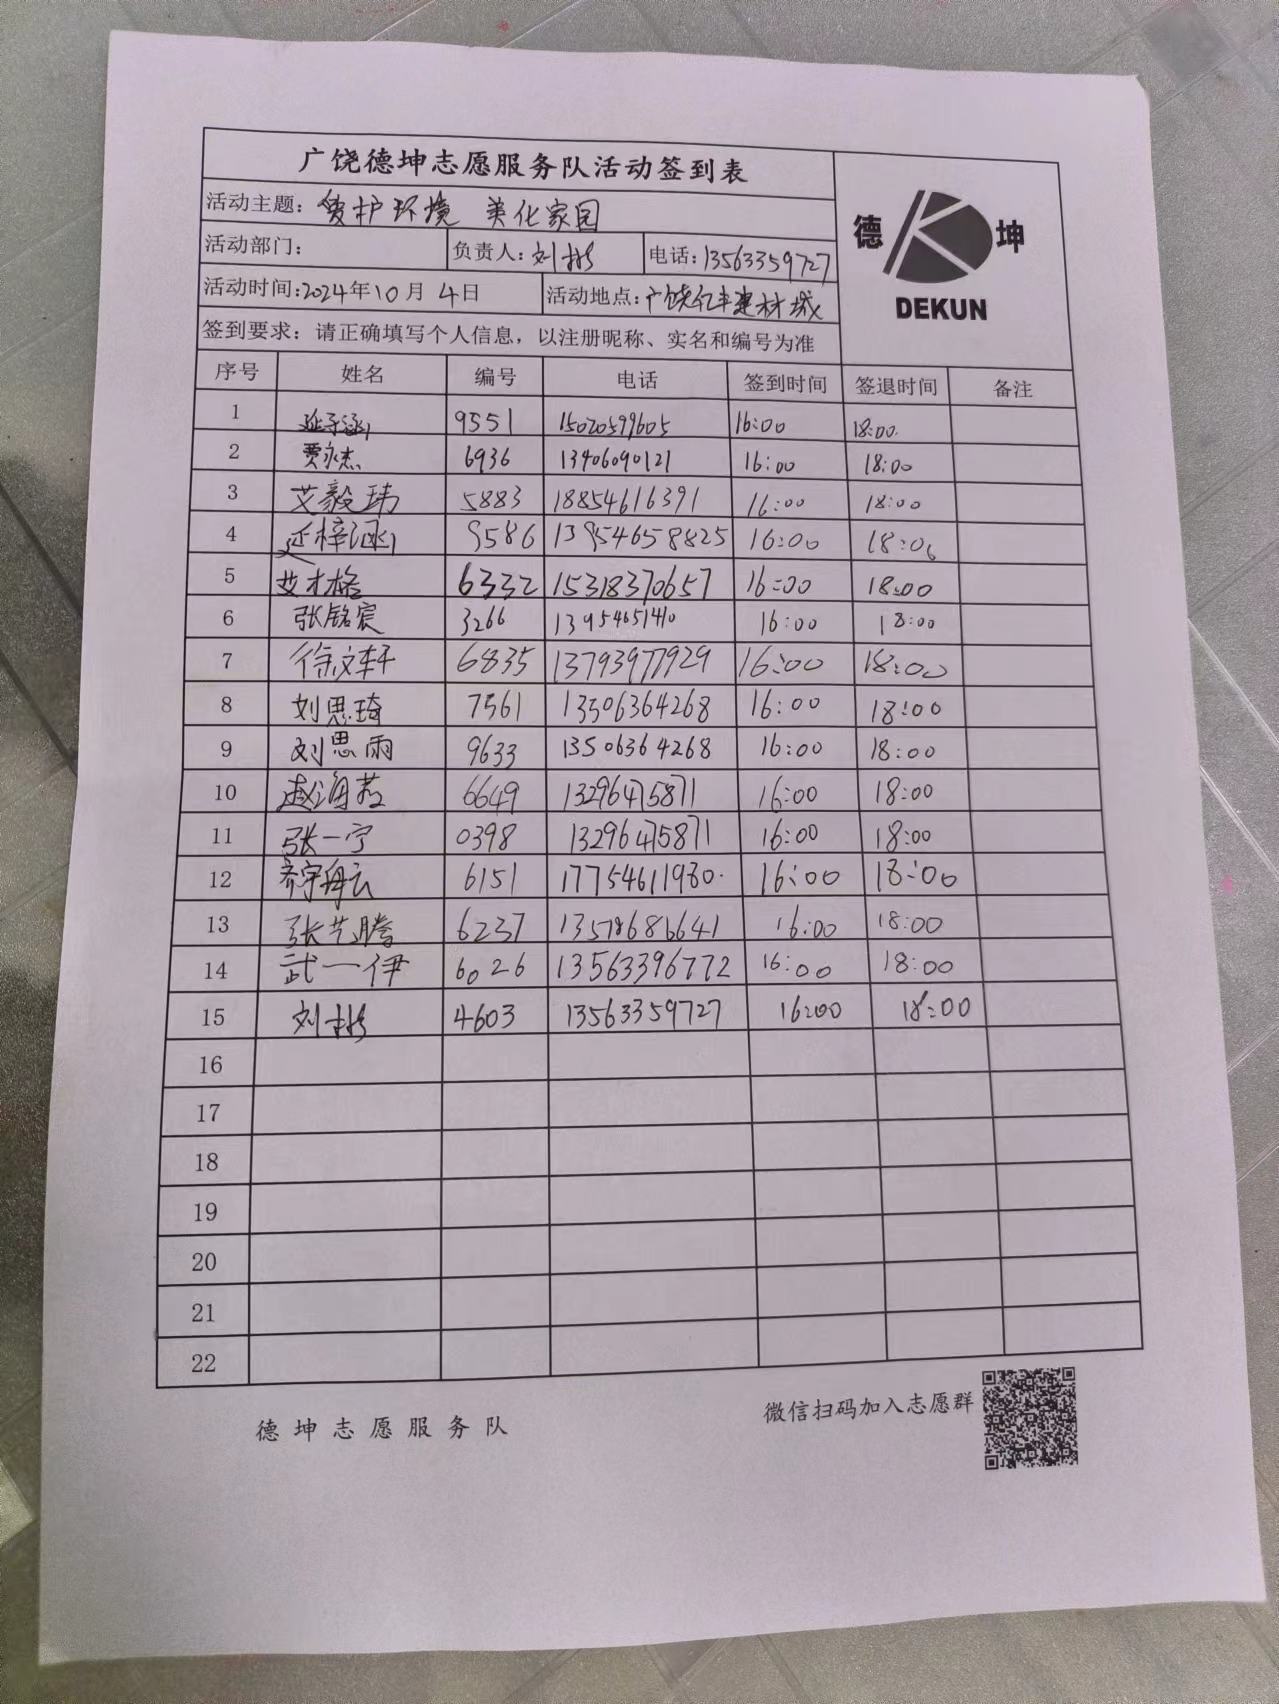 广饶德坤志愿服务队活动签到表
德 坤
DEKUN
活动主题: 爱护环境 美化家园
活动部门: 负责人: 刘彬 电话: 13563359727
活动时间: 2024年10月4日 活动地点: 广饶亿丰建材城
签到要求: 请正确填写个人信息, 以注册昵称、实名和编号为准
序号 姓名 编号 电话 签到时间 签退时间 备注
1 延子涵 9551 15020599605 16:00 18:00.
2 贾永杰 6936 13406090121 16:00 18:00
3 艾毅玮 5883 18854616391 16:00 18:00
4 延梓涵 9586 13954658825 16:00 18:00
5 艾才格 6332 15318370657 16:00 18:00
6 张铭宸 3266 13954651410 16:00 18:00
7 徐文轩 6835 13793977929 16:00 18:00
8 刘思琦 7561 13506364268 16:00 18:00
9 刘思雨 9633 13506364268 16:00 18:00
10 赵海荔 6649 13296475871 16:00 18:00
11 张一宁 0398 13296475871 16:00 18:00
12 齐宇舟云 6151 17754611980. 16:00 18:00
13 张艺腾 6237 16:00 18:00
14 武一伊 6026 13563396772 16:00 18:00
15 刘彬 4603 13563359727 16:00 18:00
16
17
18
19
20
21
22
德坤志愿服务队 微信扫码加入志愿群